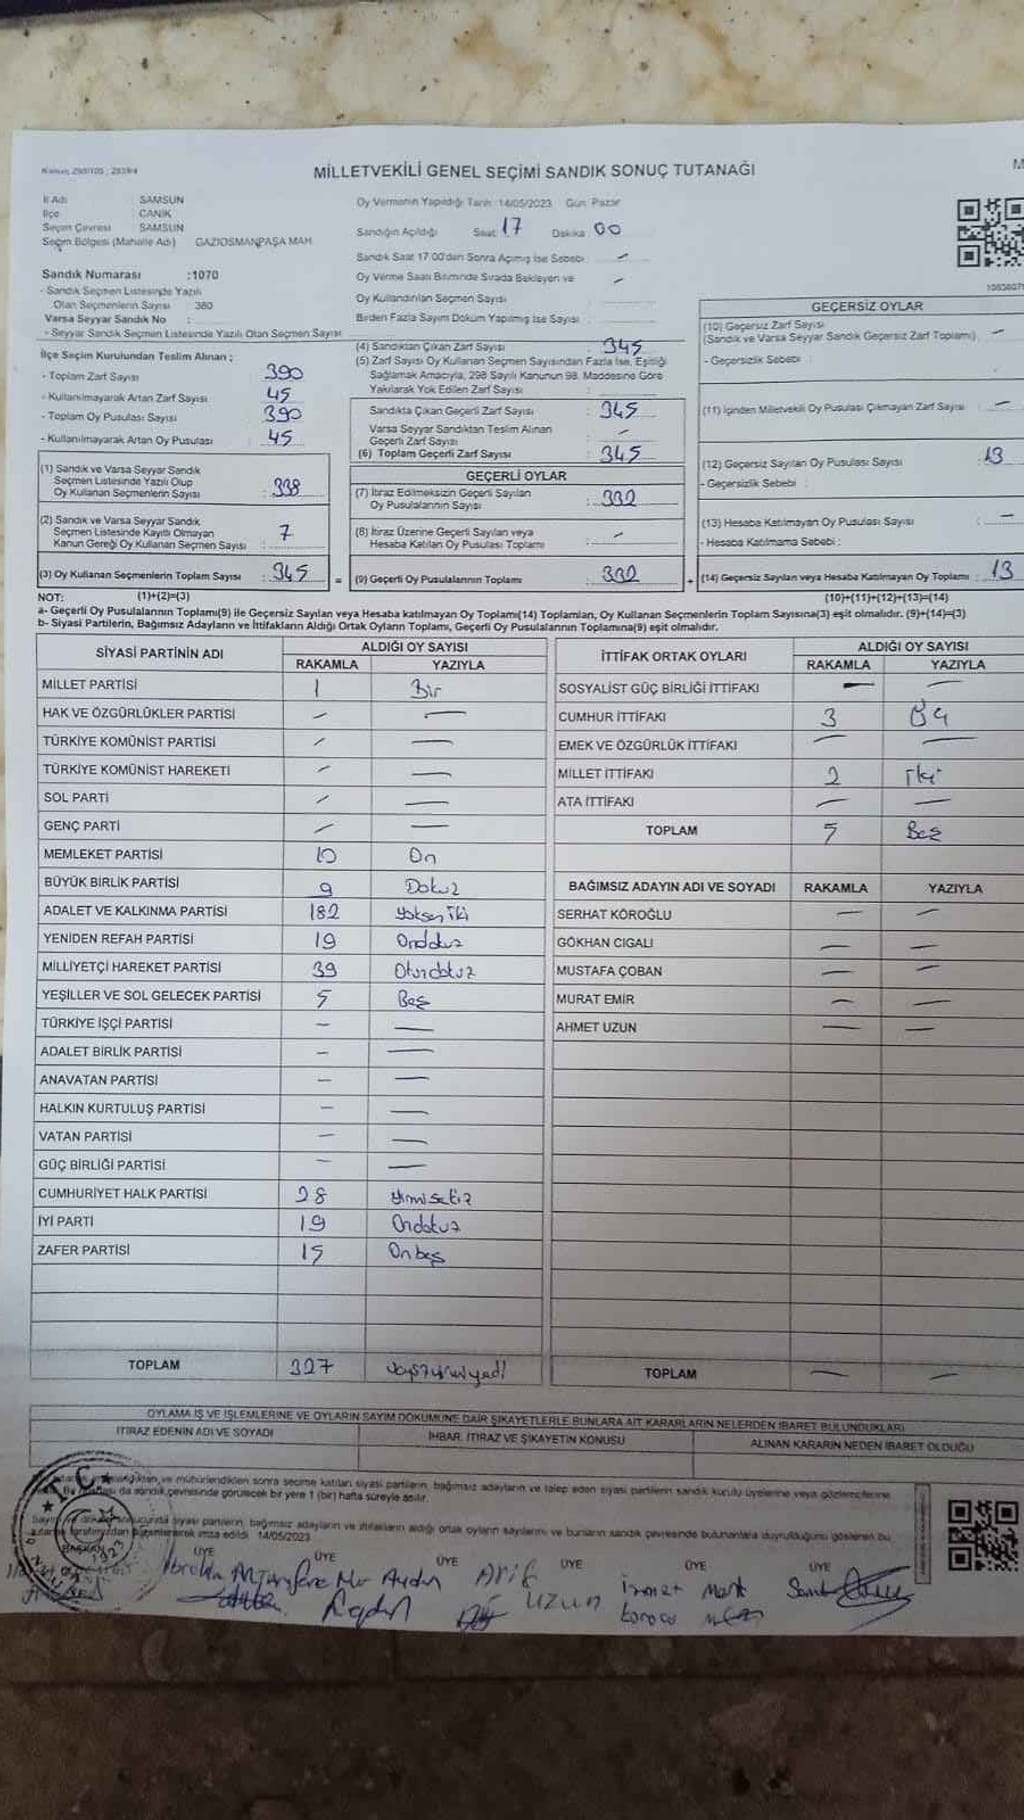 Kanun: 298/105 ; 2839/4
MİLLETVEKİLİ GENEL SEÇİMİ SANDIK SONUÇ TUTANAĞI
İl Adı : SAMSUN
İlçe : CANİK
Seçim Çevresi : SAMSUN
Seçim Bölgesi (Mahalle Adı) GAZİOSMANPAŞA MAH.
Sandık Numarası :1070
- Sandık Seçmen Listesinde Yazılı
Olan Seçmenlerin Sayısı : 380
Varsa Seyyar Sandık No :
- Seyyar Sandık Seçmen Listesinde Yazılı Olan Seçmen Sayısı
Oy Vermenin Yapıldığı Tarih :14/05/2023 Gün: Pazar
Sandığın Açıldığı Saat: 17 Dakika: 00
Sandık Saat 17:00'den Sonra Açılmış İse Sebebi : -
Oy Verme Saati Bitiminde Sırada Bekleyen ve
Oy Kullandırılan Seçmen Sayısı : -
Birden Fazla Sayım Döküm Yapılmış İse Sayısı :
İlçe Seçim Kurulundan Teslim Alınan ;
- Toplam Zarf Sayısı : 390
- Kullanılmayarak Artan Zarf Sayısı : 45
- Toplam Oy Pusulası Sayısı : 390
- Kullanılmayarak Artan Oy Pusulası : 45
(1) Sandık ve Varsa Seyyar Sandık
Seçmen Listesinde Yazılı Olup
Oy Kullanan Seçmenlerin Sayısı : 338
(2) Sandık ve Varsa Seyyar Sandık
Seçmen Listesinde Kayıtlı Olmayan
Kanun Gereği Oy Kullanan Seçmen Sayısı : 7
(3) Oy Kullanan Seçmenlerin Toplam Sayısı : 345
(4) Sandıktan Çıkan Zarf Sayısı : 345
(5) Zarf Sayısı Oy Kullanan Seçmen Sayısından Fazla İse, Eşitliği
Sağlamak Amacıyla, 298 Sayılı Kanunun 98. Maddesine Göre
Yakılarak Yok Edilen Zarf Sayısı :
Sandıkta Çıkan Geçerli Zarf Sayısı : 345
Varsa Seyyar Sandıktan Teslim Alınan
Geçerli Zarf Sayısı : -
(6) Toplam Geçerli Zarf Sayısı : 345
GEÇERLİ OYLAR
(7) İtiraz Edilmeksizin Geçerli Sayılan
Oy Pusulalarının Sayısı : 332
(8) İtiraz Üzerine Geçerli Sayılan veya
Hesaba Katılan Oy Pusulası Toplamı : -
= (9) Geçerli Oy Pusulalarının Toplamı : 332
GEÇERSİZ OYLAR
(10) Geçersiz Zarf Sayısı
(Sandık ve Varsa Seyyar Sandık Geçersiz Zarf Toplamı) : -
- Geçersizlik Sebebi :
(11) İçinden Milletvekili Oy Pusulası Çıkmayan Zarf Sayısı : -
(12) Geçersiz Sayılan Oy Pusulası Sayısı : 13
- Geçersizlik Sebebi :
(13) Hesaba Katılmayan Oy Pusulası Sayısı : -
- Hesaba Katılmama Sebebi :
+ (14) Geçersiz Sayılan veya Hesaba Katılmayan Oy Toplamı : 13
NOT: (1)+(2)=(3) (10)+(11)+(12)+(13)=(14)
a- Geçerli Oy Pusulalarının Toplamı(9) ile Geçersiz Sayılan veya Hesaba katılmayan Oy Toplamı(14) Toplamları, Oy Kullanan Seçmenlerin Toplam Sayısına(3) eşit olmalıdır. (9)+(14)=(3)
b- Siyasi Partilerin, Bağımsız Adayların ve İttifakların Aldığı Ortak Oyların Toplamı, Geçerli Oy Pusulalarının Toplamına(9) eşit olmalıdır.
SİYASİ PARTİNİN ADI ALDIĞI OY SAYISI
RAKAMLA YAZIYLA
MİLLET PARTİSİ 1 Bir
HAK VE ÖZGÜRLÜKLER PARTİSİ - -
TÜRKİYE KOMÜNİST PARTİSİ - -
TÜRKİYE KOMÜNİST HAREKETİ - -
SOL PARTİ - -
GENÇ PARTİ - -
MEMLEKET PARTİSİ 10 On
BÜYÜK BİRLİK PARTİSİ 9 Dokuz
ADALET VE KALKINMA PARTİSİ 182 yüksen İki
YENİDEN REFAH PARTİSİ 19 Ondokuz
MİLLİYETÇİ HAREKET PARTİSİ 39 Otuzdokuz
YEŞİLLER VE SOL GELECEK PARTİSİ 5 Beş
TÜRKİYE İŞÇİ PARTİSİ - -
ADALET BİRLİK PARTİSİ - -
ANAVATAN PARTİSİ - -
HALKIN KURTULUŞ PARTİSİ - -
VATAN PARTİSİ - -
GÜÇ BİRLİĞİ PARTİSİ - -
CUMHURİYET HALK PARTİSİ 28 Yirmisekiz
İYİ PARTİ 19 Ondokuz
ZAFER PARTİSİ 15 Onbeş
TOPLAM 327
İTTİFAK ORTAK OYLARI ALDIĞI OY SAYISI
RAKAMLA YAZIYLA
SOSYALİST GÜÇ BİRLİĞİ İTTİFAKI - -
CUMHUR İTTİFAKI 3 Üç
EMEK VE ÖZGÜRLÜK İTTİFAKI - -
MİLLET İTTİFAKI 2 İki
ATA İTTİFAKI - -
TOPLAM 5 Beş
BAĞIMSIZ ADAYIN ADI VE SOYADI RAKAMLA YAZIYLA
SERHAT KÖROĞLU - -
GÖKHAN CIGALI - -
MUSTAFA ÇOBAN - -
MURAT EMİR - -
AHMET UZUN - -
TOPLAM - -
OYLAMA İŞ VE İŞLEMLERİNE VE OYLARIN SAYIM DÖKÜMÜNE DAİR ŞİKAYETLERLE BUNLARA AİT KARARLARIN NELERDEN İBARET BULUNDUKLARI
İTİRAZ EDENİN ADI VE SOYADI İHBAR, İTİRAZ VE ŞİKAYETİN KONUSU ALINAN KARARIN NEDEN İBARET OLDUĞU
ve mühürlendikten sonra seçime katılan siyasi partilerin, bağımsız adayların ve talep eden siyasi partilerin sandık kurulu üyelerine veya gözlemcilerine
da sandık çevresinde görülecek bir yere 1 (bir) hafta süreyle asılır.
siyasi partilerin, bağımsız adayların ve ittifakların aldığı ortak oyların sayılarını ve bunların sandık çevresinde bulunanlara duyurulduğunu gösteren bu
imza edildi. 14/05/2023
T.C.
BAŞKAN ÜYE ÜYE ÜYE ÜYE ÜYE ÜYE
İbrahim Aydın Arif İsmet Mert
UZUN